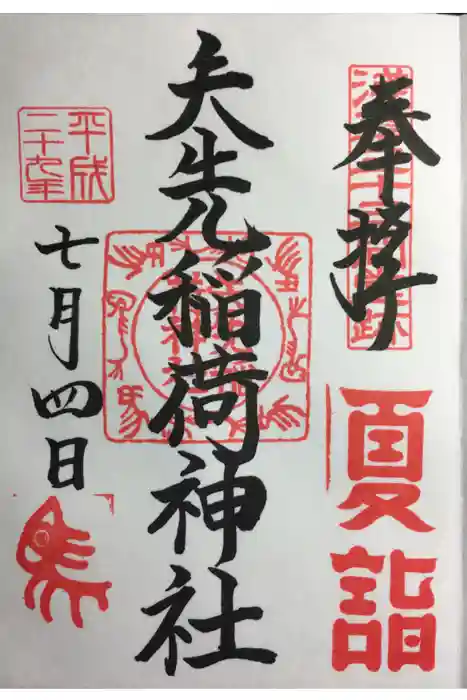 奉拝
夏詣
矢先稲荷神社
平成
二十九年
七月四日
馬